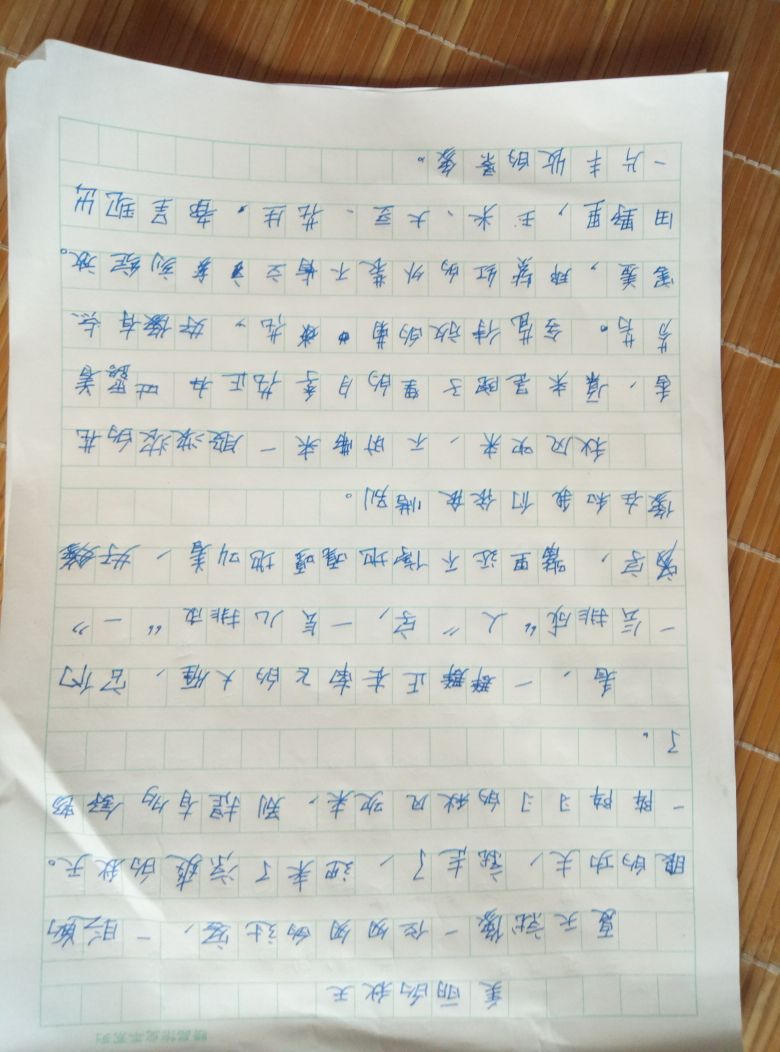 美丽的秋天
夏天就像一位匆匆的过客，一眨眼
眼的功夫，就走了，迎来了凉爽的秋天。
一阵阵习习的秋风吹来，别提有多舒畅
了。
看，一群群正在南飞的大雁，它们
一会排成“人”字，一会儿排成“一”
字，嘴里还不停地嘎嘎地叫着，好
像在和我们依依惜别。
秋风吹来，不时带来一股浓浓的花
香，原来是院子里的月季花正在吐露着
芬芳。含苞待放的菊花，好像有点
害羞，那嫩红的外裳不肯立刻绽放。
田野里，玉米、大豆、花生，都呈现出
一片丰收的景象。